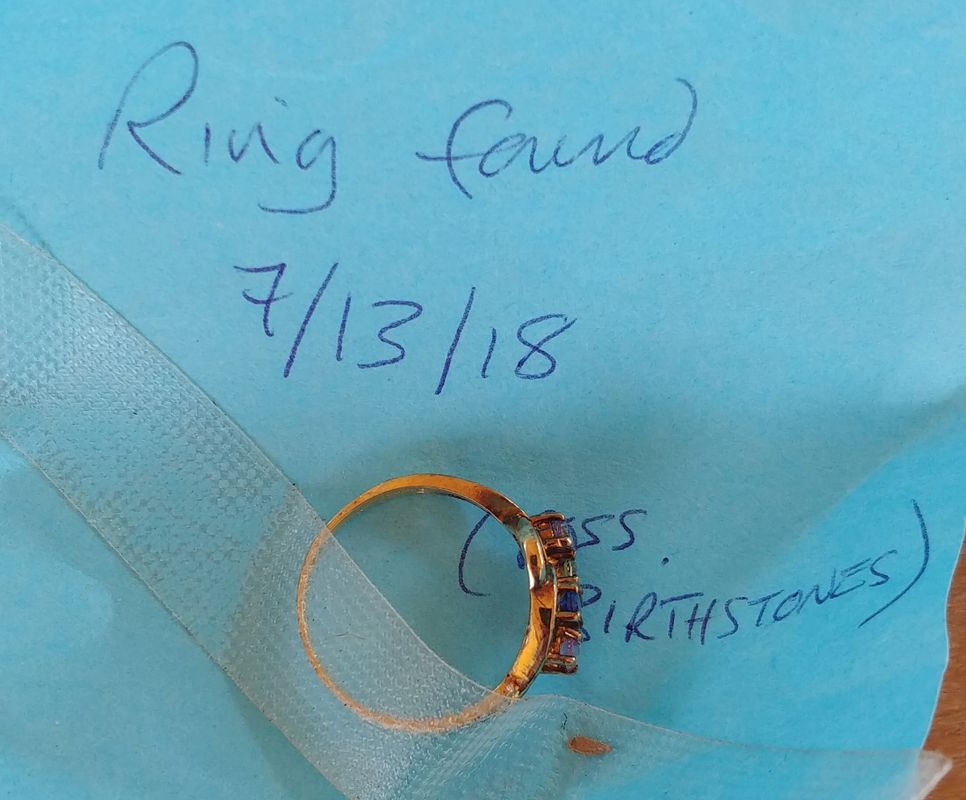 Ring found
7/13/18
(
SS.
BIRTHSTONES)